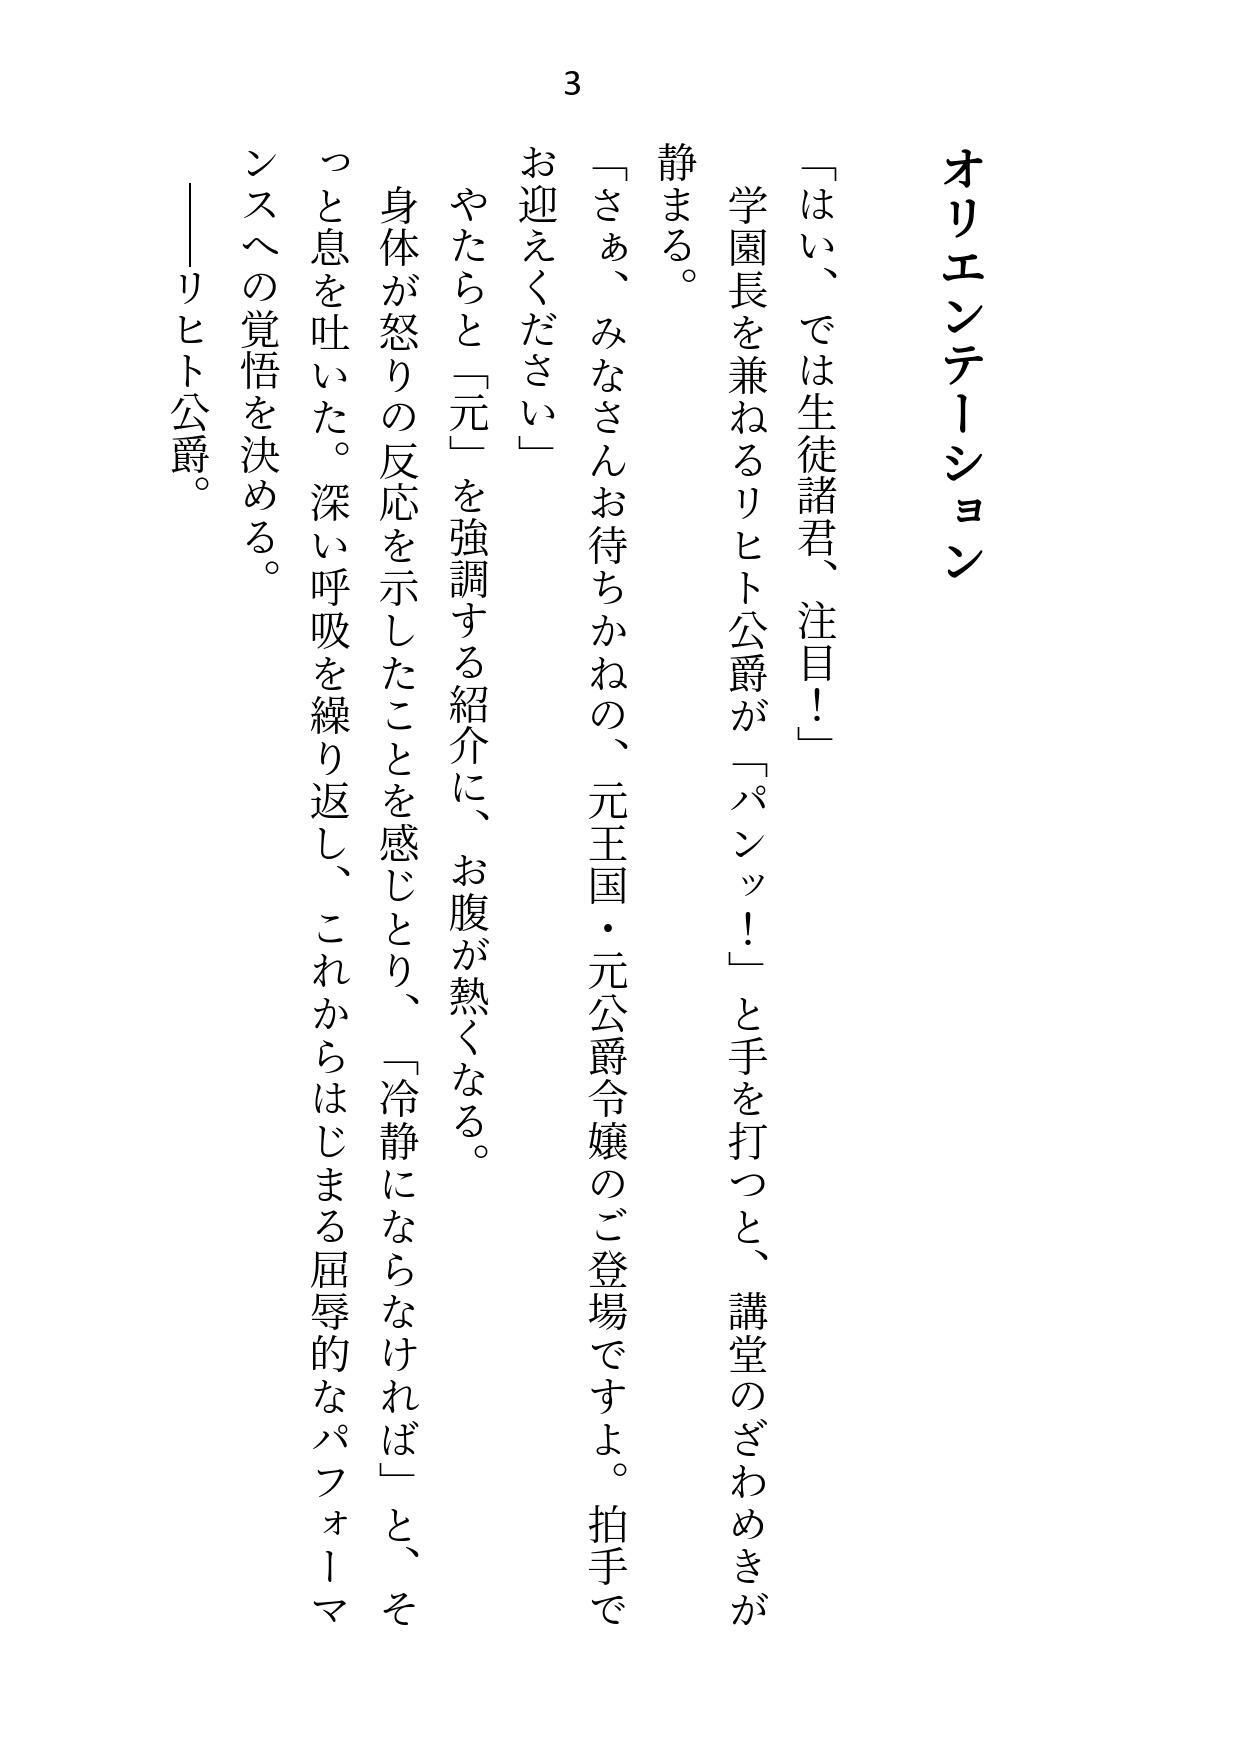 3
オリエンテーション
「はい、では生徒諸君、注目！」
学園長を兼ねるリヒト公爵が「パンッ！」と手を打つと、講堂のざわめきが
静まる。
「さぁ、みなさんお待ちかねの、元王国・元公爵令嬢のご登場ですよ。拍手で
お迎えください」
やたらと「元」を強調する紹介に、お腹が熱くなる。
身体が怒りの反応を示したことを感じとり、「冷静にならなければ」と、そ
っと息を吐いた。深い呼吸を繰り返し、これからはじまる屈辱的なパフォーマ
ンスへの覚悟を決める。
――リヒト公爵。